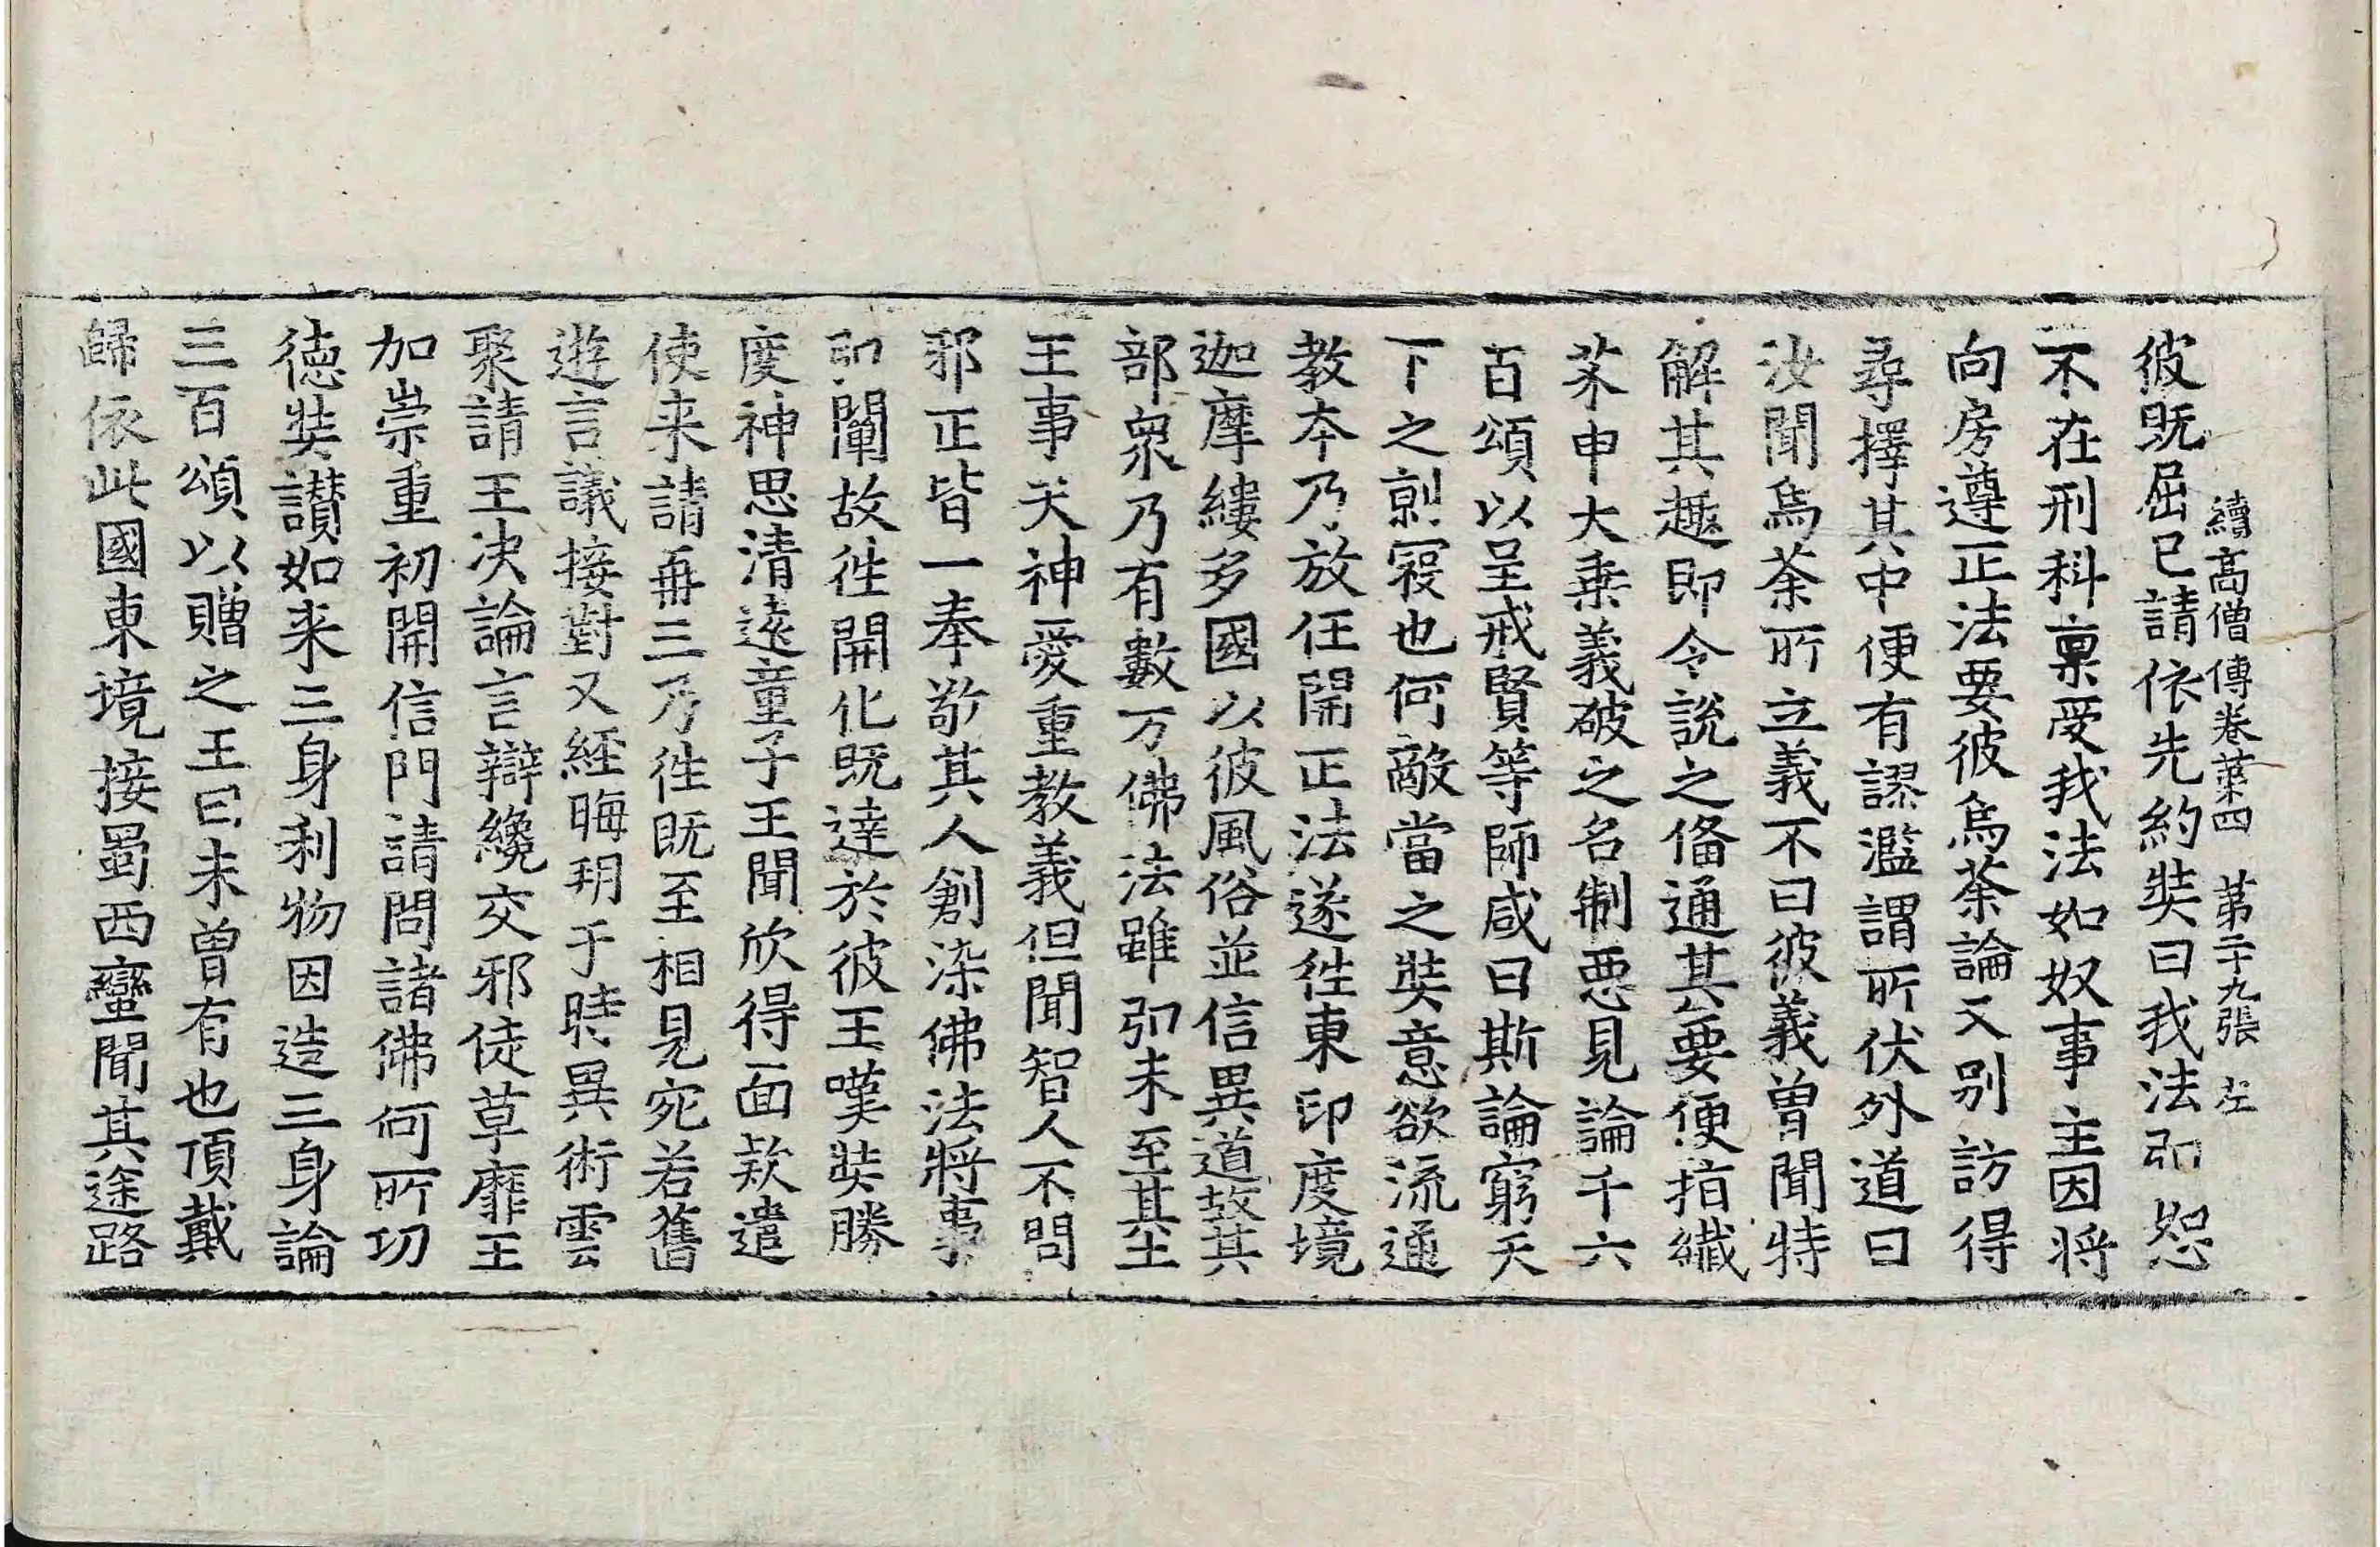 續高僧傳卷第四 第二十九張 左
彼既屈已請依先約奘曰我法弘恕
不在刑科禀受我法如奴事主因将
向房遵正法要彼烏荼論又别訪得
尋擇其中便有謬濫謂所伏外道曰
汝聞烏荼所立義不曰彼義曽聞特
解其趣即令說之俻通其要便指纖
芥申大乗義破之名制惡見論千六
百頌以呈戒賢等師咸曰斯論窮天
下之勍寇也何敵當之奘意欲流通
教本乃放任開正法遂徃東印度境
迦摩縷多國以彼風俗並信異道故其
部衆乃有數万佛法雖弘未至其土
王事天神愛重教義但聞智人不問
邪正皆一奉敬其人創染佛法將事
弘闡故徃開化既達於彼王嘆奘勝
度神思清遠童子王聞欣得面款遣
使来請再三乃徃既至相見宛若舊
遊言議接對又經晦朔于時異術雲
聚請王决論言辯纔交邪徒草靡王
加崇重初開信門請問諸佛何所功
德奘讃如来三身利物因造三身論
三百頌以贈之王曰未曽有也頂戴
歸依此國東境接蜀西蠻聞其途路